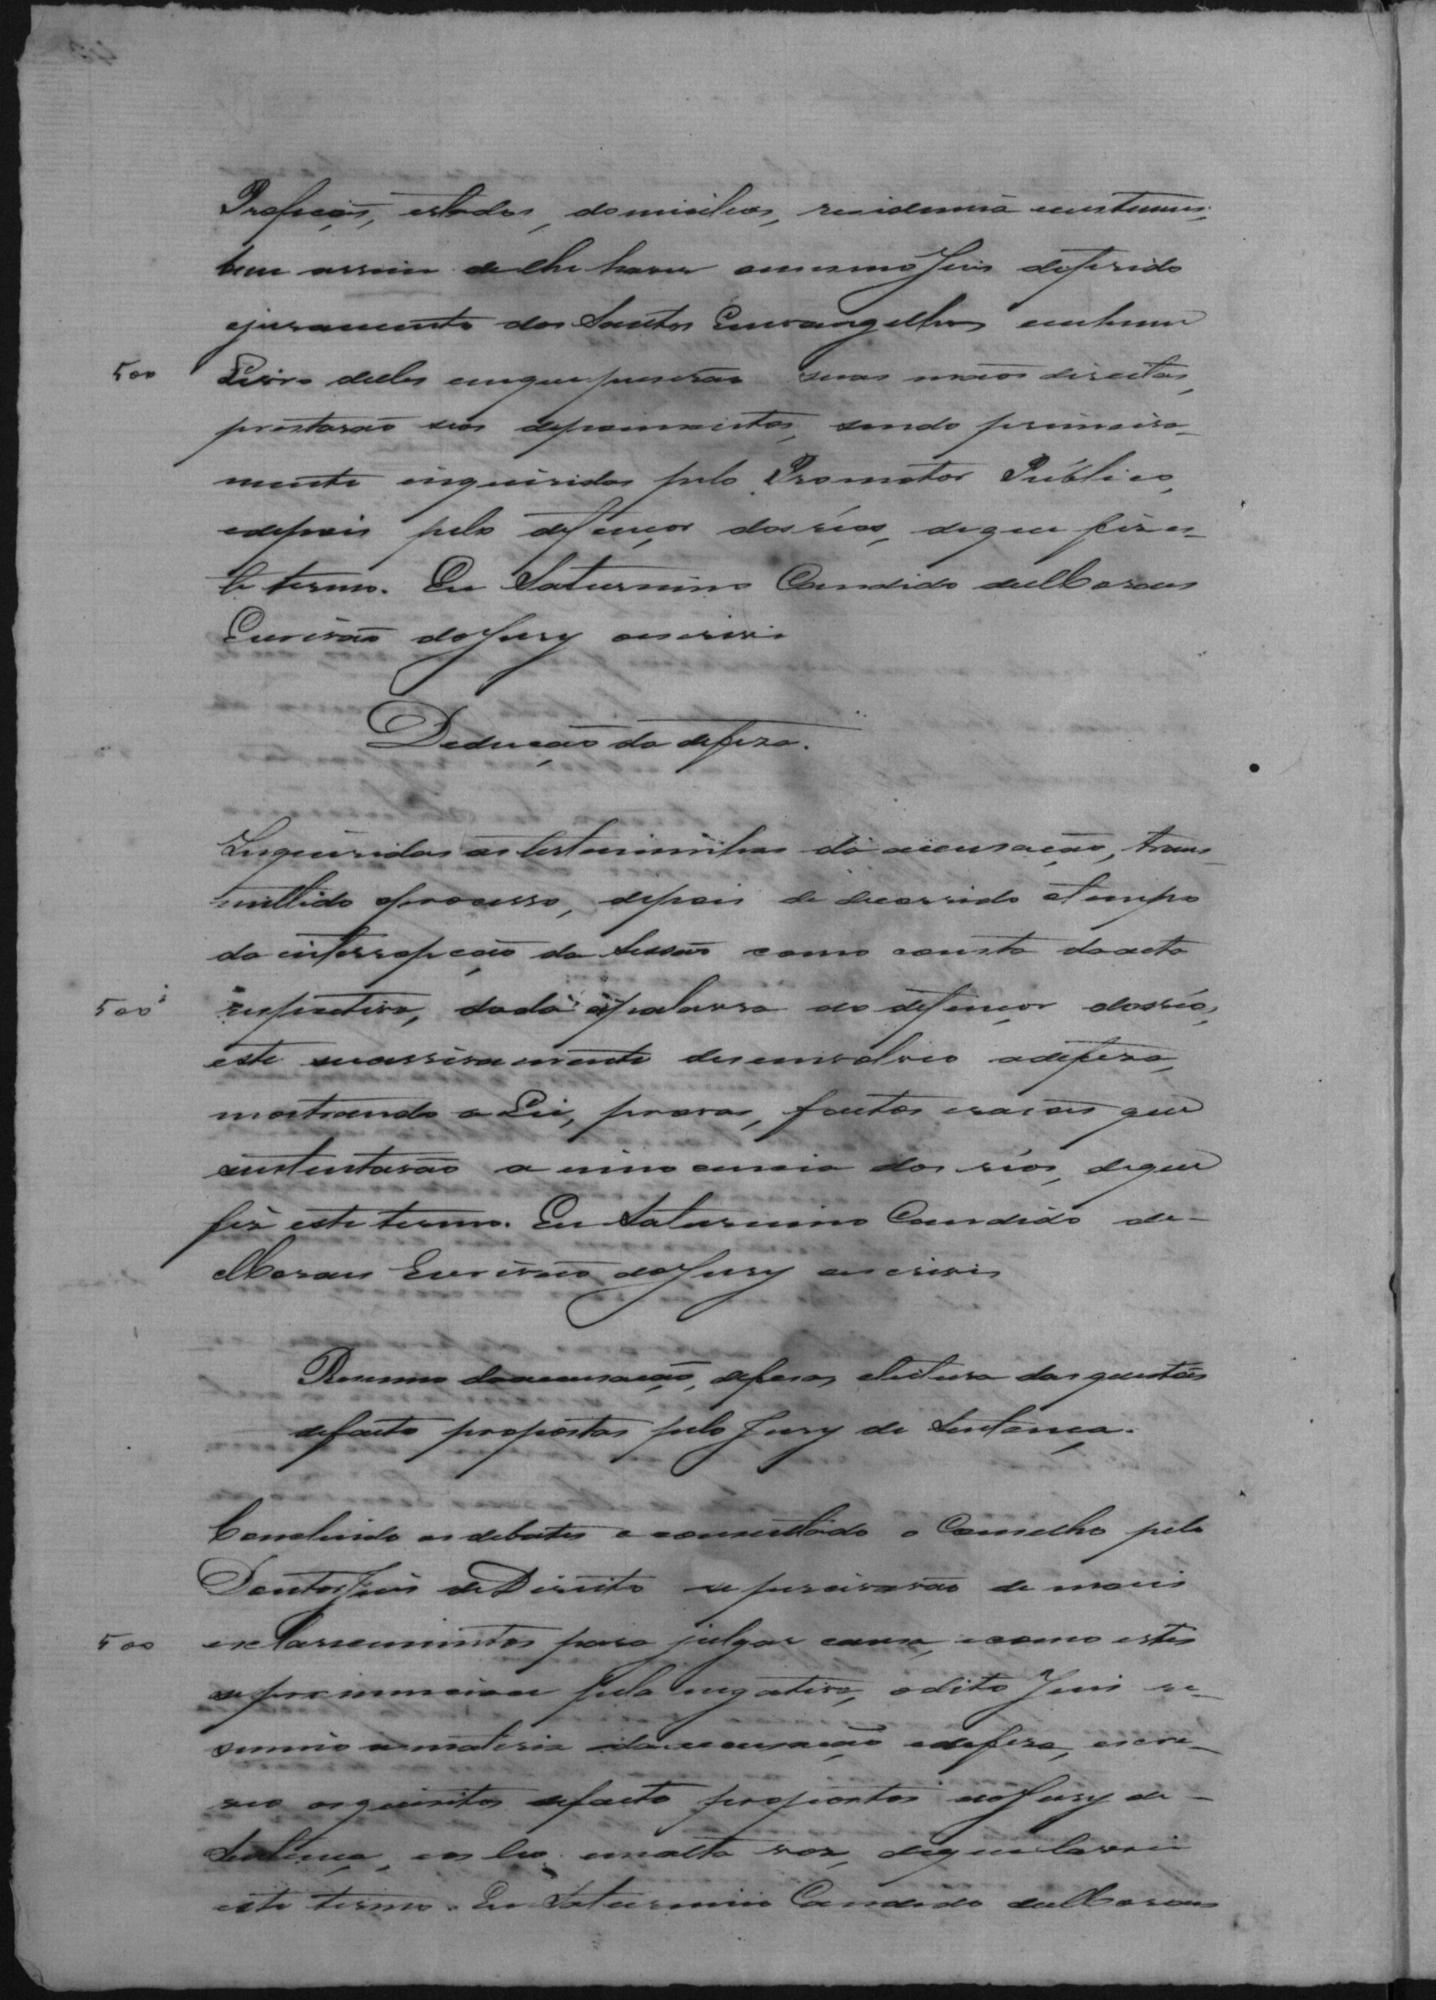 Profição, estados, domicilios, residencia costumes,
bem assim de lhe haver o mesmo Juis deferido
ojuramento dos Santos Envangelhos em hum
500 Livro delles em que puserão suas mãos direitas,
prestarão seos depoimentos, sendo primeira-
mente inquiridas pelo Promotor Publico,
edepois pelo defençor dos réos, deque fiz es-
te termo. Eu Saturnino Candido deMoraes
Escrivão do Jury oescrivi
Dedução da defeza.
Inqueridas as testiminhas da accusação, trans-
mittido oprocesso, depois de decorrido otempo
da interropção da Sessão como consta da acta
500 respectiva, dada apalavra ao defençor dos réos,
este sucessivamente desenvolveo adefeza,
mostrando a Lei, provas, factos erasões que
sustentavão a innocencia dos réos, deque
fiz este termo. Eu Saturnino Candido de-
Moraes Escrivão do Jury oescrivi
Resumo da accusação, defesa, eleitura das questões
defacto propostas pelo Jury de Sentença.
Concluido os debates e consultado o Conselho pelo
Doutor Juis de Direito se precisavão de mais
500 esclarecimentos para julgar causa, ecomo estes
se pronunciace pela negativa, odito Juis re-
sumio amateria da accusação edefeza, escre-
veo osquesitos defacto propostos aoJury de-
Sentença, eos leo emalta voz, deque lavrei
este termo. Eu Saturnino Candido deMoraes